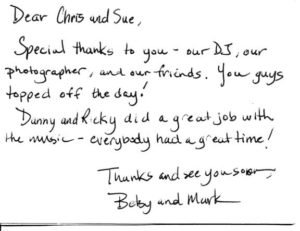 Dear Chris and Sue,
Special thanks to you - our DJ, our
photographer, and our friends. You guys
topped off the day!
Danny and Ricky did a great job with
the music - everybody had a great time!
Thanks and see you soon,
Betsy and Mark